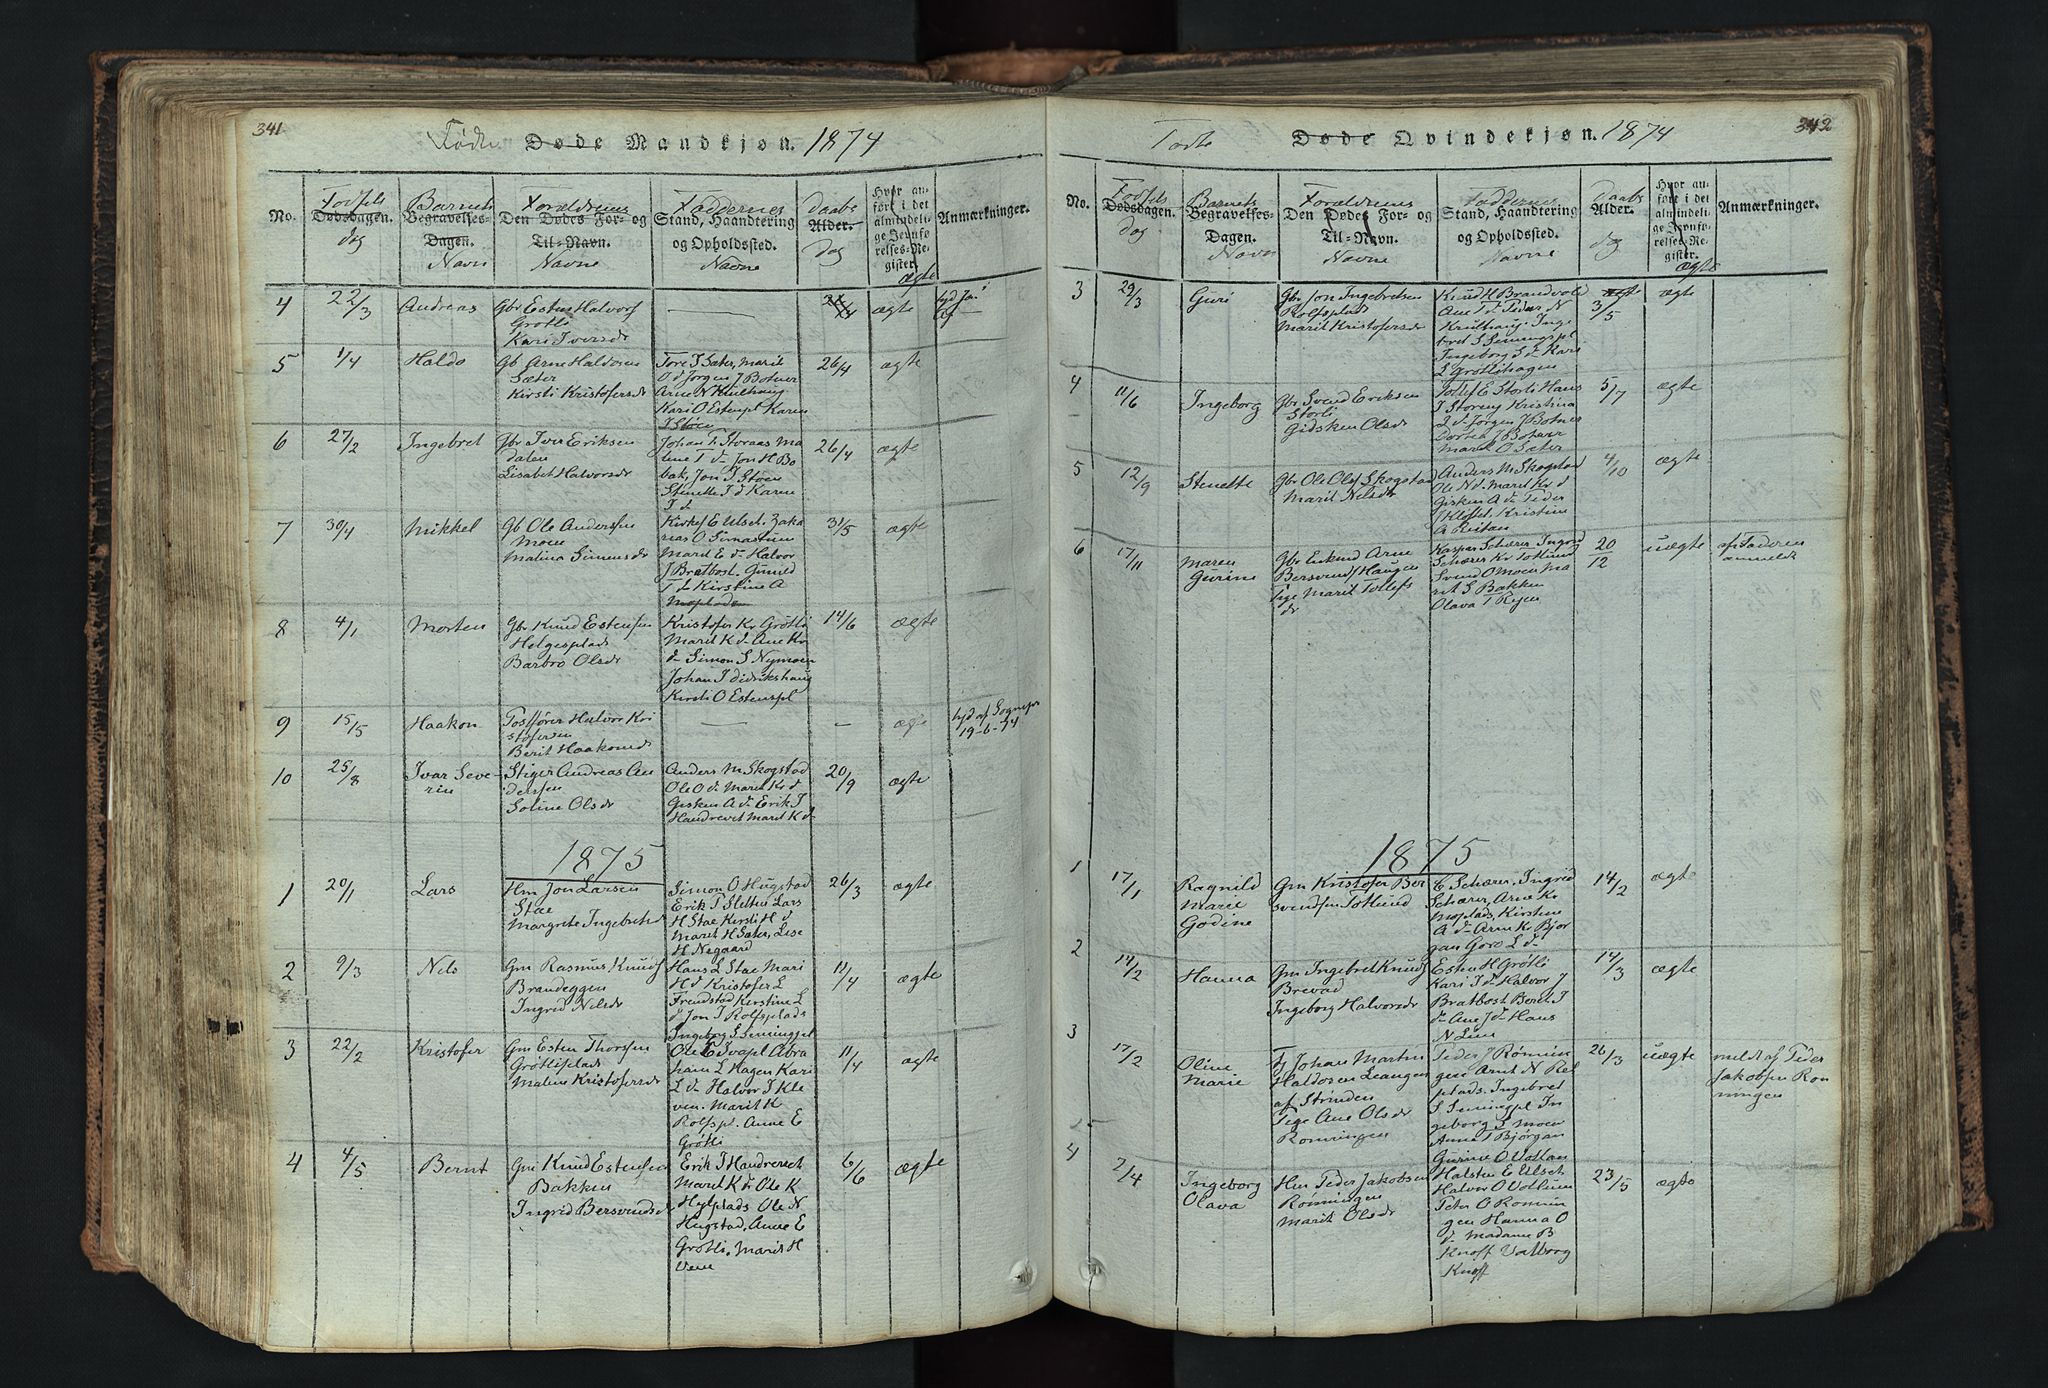 341
Fødte Døde Mandkjøn. 1874
No.
Fødsels
Dødsdagen.
dag
Barnets
Begravelses-
Dagen.
Navn
Forældrenes
Den Dødes For- og
Til-Navn.
Navne
Faddernes
Stand, Haandtering
og Opholdssted.
Navne
Daabs
Alder.
dag
Hvor an-
ført i det
almindeli-
ge Jevnfø-
relses-Re-
gister.
ægte
Anmærkninger.
4 22/3 Andreas
Gbr Esten Halvors
Grøtli
Kari Iversdr
ægte
5 1/4 Haldo
Gb Arne Haldosen
Sæter
Kirsti Kristofersdr
Tore J Sæter, Marit
O d Jørgen J Botner
Arne N Krulhaug
Kari O Estenpl Karen
J Stoen
26/4 ægte
6 27/2 Ingebret
Gbr Iver Eriksen
dalen
Lisabet Halvorsdr
Johan T. Storaas Ma
lene T d. Jon H Bo
bak, Jon J Stoen
Stenette J d Karen
J d
26/4 ægte
7 30/4 Mikkel
Gb Ole Andersen
Moen
Malina Simensdr
Marit E d Halvor
J Bratbost. Gunild
T d Kirstine A
Moplads
31/5 ægte
8 4/1 Morten
Gbr Knud Estensen
Helgesplads
Barbro Olsdr
Kristofer Kr Grøtli
Marit K d Ane Kr
d Simon S Nymoen
Johan J didrikshaug
Kirsti O Estenspl
14/6 ægte
9 15/5 Haakon
Halvor Kri
stofersen
Berit Haakonsdr
— —
ægte
af Sognepr
19-6-74
10 25/8 Ivar Seve-
rin
Stiger Andreas An
dersen
Soline Olsdr
Anders M Skogstad
Ole O d Maren Kr d
Gisken A d Erik J
Haudrevet Marit K d
20/9 ægte
1875
1 20/1 Lars
Hm Jon Larsen
Stae
Margrete Ingebretsd
Simon O Hugstad
Erik P Sletten Lars
H Stae Kirsti H d
Marit H Sæter, Lise
H Negaard
26/3 ægte
2 9/3 Nels
Gm Rasmus Knuds
Brandeggen
Ingrid Nelsdr
Hans L Stae Mari
H d Kristofer L
Frendstad Kerstine L
d Jon J Rolfsplads
Ingeborg S Simingspl
11/4 ægte
3 22/2 Kristofer
Gm Esten Thorsen
Grøtliplads
Maline Kristofersdr
Ole E Svapl Abra
ham L Hagen Kari
L d Halvor J Kle
ven. Marit K
Rolfspl. Anne E
Grøtli
11/4 ægte
4 4/5 Bernt
Gm Knud Estensen
Bakken
Ingrid Bersvendsdr
Erik J Haudrevet
Marit K d Ole K
Hylplads Ole N
Hugstad, Anne E
Grøtli. Marit H
Veen
6/6 ægte
342
Døde Qvindekjøn. 1874
No.
Fødsels
Dødsdagen.
dag
Barnets
Begravelses-
Dagen.
Navn
Forældrenes
Den Dødes For- og
Til-Navn.
Navne
Faddernes
Stand, Haandtering
og Opholdssted.
Navne
Daabs
Alder.
dag
Hvor an-
ført i det
almindeli-
ge Jevnfø-
relses-Re-
gister.
ægte
Anmærkninger.
3 29/3 Guri
Gbr Jon Ingebretsen
Rolfsplads
Marit Kristofersdr
Knud H Brandvold
Ane T d Peder N
Krulhaug Inge
bret S Simingspl
Ingeborg S d Kari
L Grøtlihagen
3/5 ægte
4 11/6 Ingeborg
Gbr Svend Eriksen
Storli
Gidsken Olsdr
Tollef E Storli Hans
J Storeng Kristina
J d Jørgen J Botner
Dortea J Botner
Maret O Sæter
5/7 ægte
5 12/9 Stenette
Gbr Ole Ols Skogstad
Marit Nelsdr
Anders M Skogstad
Ole N d. Marit Kr d
Gisken A d Peder
J Kløftet Kristine
A Reitan
4/10 ægte
6 17/11 Maren
Gurine
Gbr Enkemd Arne
Bersvends Haugen
Pige Marit Tollefs
dr
Kaspar Schærer Ingrid
Schærer Kr Totlund
Svend O Moen Ma
rit S Bakken
Olava T Ryen
20/12 uægte af Faderen
anmeldt
1875
1 17/1 Ragnild
Marie
Godine
Gm Kristofer Ber
svendsen Totlund
C Schærer, Ingrid
Schærer, Arne Kr
Moplads, Kirstine
A d Arne Kr Bjør
gan Goro L d
14/2 ægte
2 14/2 Hanna
Gm Ingebret Knuds
Brevad
Ingeborg Halvorsdr
Esten H Grøtli
Kari J d Halvor J
Bratbost Beret J
d Ane J d Hans
N Lien
14/3 ægte
3 17/2 Oline
Marie
Fj Johan Martin
Haldosen Leangen
af Strinden
Pige Ane Olsdr
Rønningen
Peder J Rønnin
gen Arnt N Rol
plads. Ingebret
S Simingpl In
geborg S Moen
Anne T Bjørgan
Gurine O Volan
26/3 uægte meldt af Peder
Jakobsen Røn
ningen
4 2/4 Ingeborg
Olava
Hm Peder Jakobsen
Rønningen
Marit Olsdr
Halsten E Ulset
Halvor O Votlum
Peter O Rønnin
gen Hanna O
d. Madame B
Knoff Valborg
Knoff
23/5 ægte